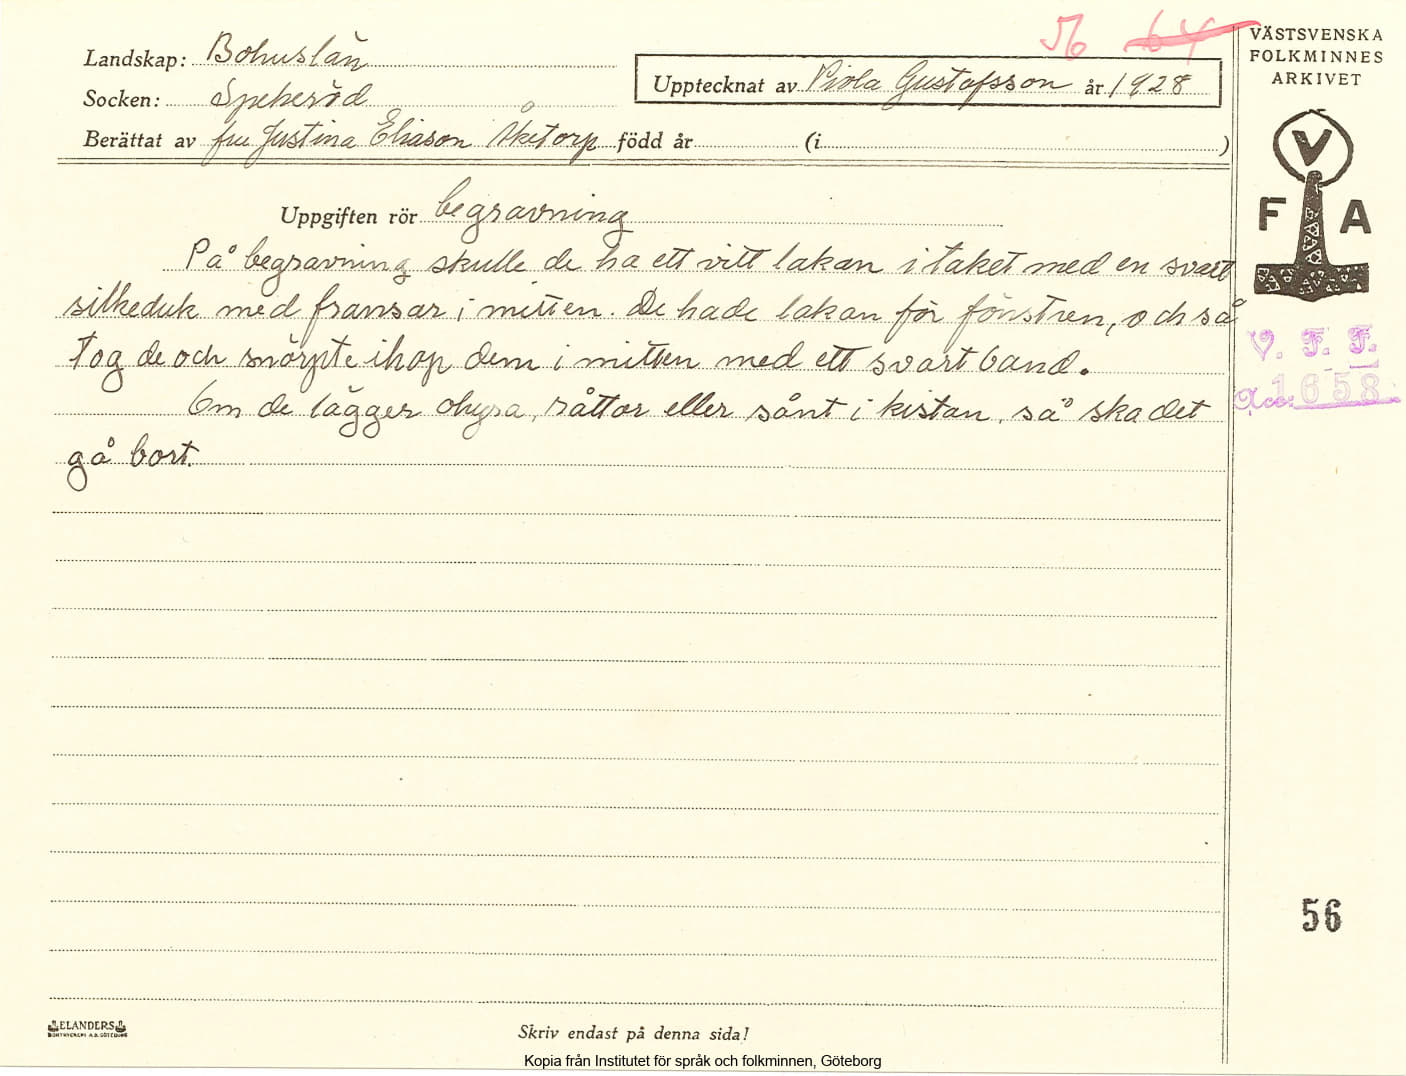 56 64
Landskap: Bohuslän
Socken: Spekeröd
Upptecknat av Viola Gustafsson år 1928
Berättat av fru Justina Eliason Åketorp född år (i )
VÄSTSVENSKA
FOLKMINNES
ARKIVET
V
F A
V. F. F.
Acc. 1658
Uppgiften rör begravning
På begravning skulle de ha ett vitt lakan i taket med en svart
silkeduk med fransar i mitten. De hade lakan för fönstren, och så
tog de och snörpte ihop dem i mitten med ett svart band.
Om de lägger ohyra, råttor eller sånt i kistan, så ska det
gå bort.
56
ELANDERS
BOKTRYCKERI A.B. GÖTEBORG
Skriv endast på denna sida!
Kopia från Institutet för språk och folkminnen, Göteborg